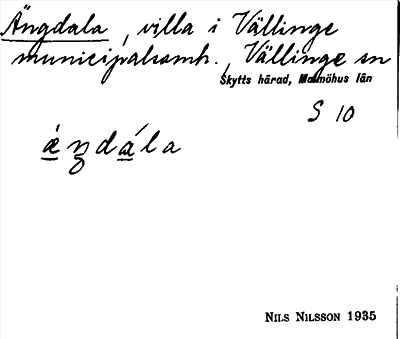 Ängdala, villa i Vällinge
municipalsamh., Vällinge sn
Skytts härad, Malmöhus län
S 10
ä́ŋdála
NILS NILSSON 1935